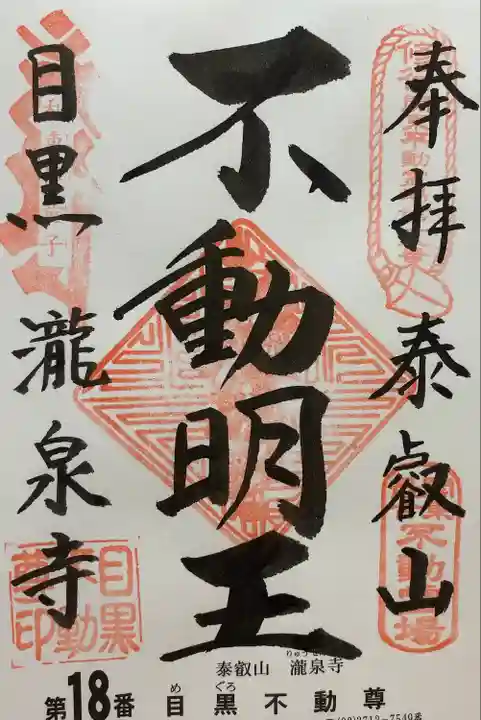 奉拝 泰叡山
不動明王
目黒 瀧泉寺
目黒
不動
尊印
泰叡山 瀧泉寺
第18番 目黒不動尊
めぐろ